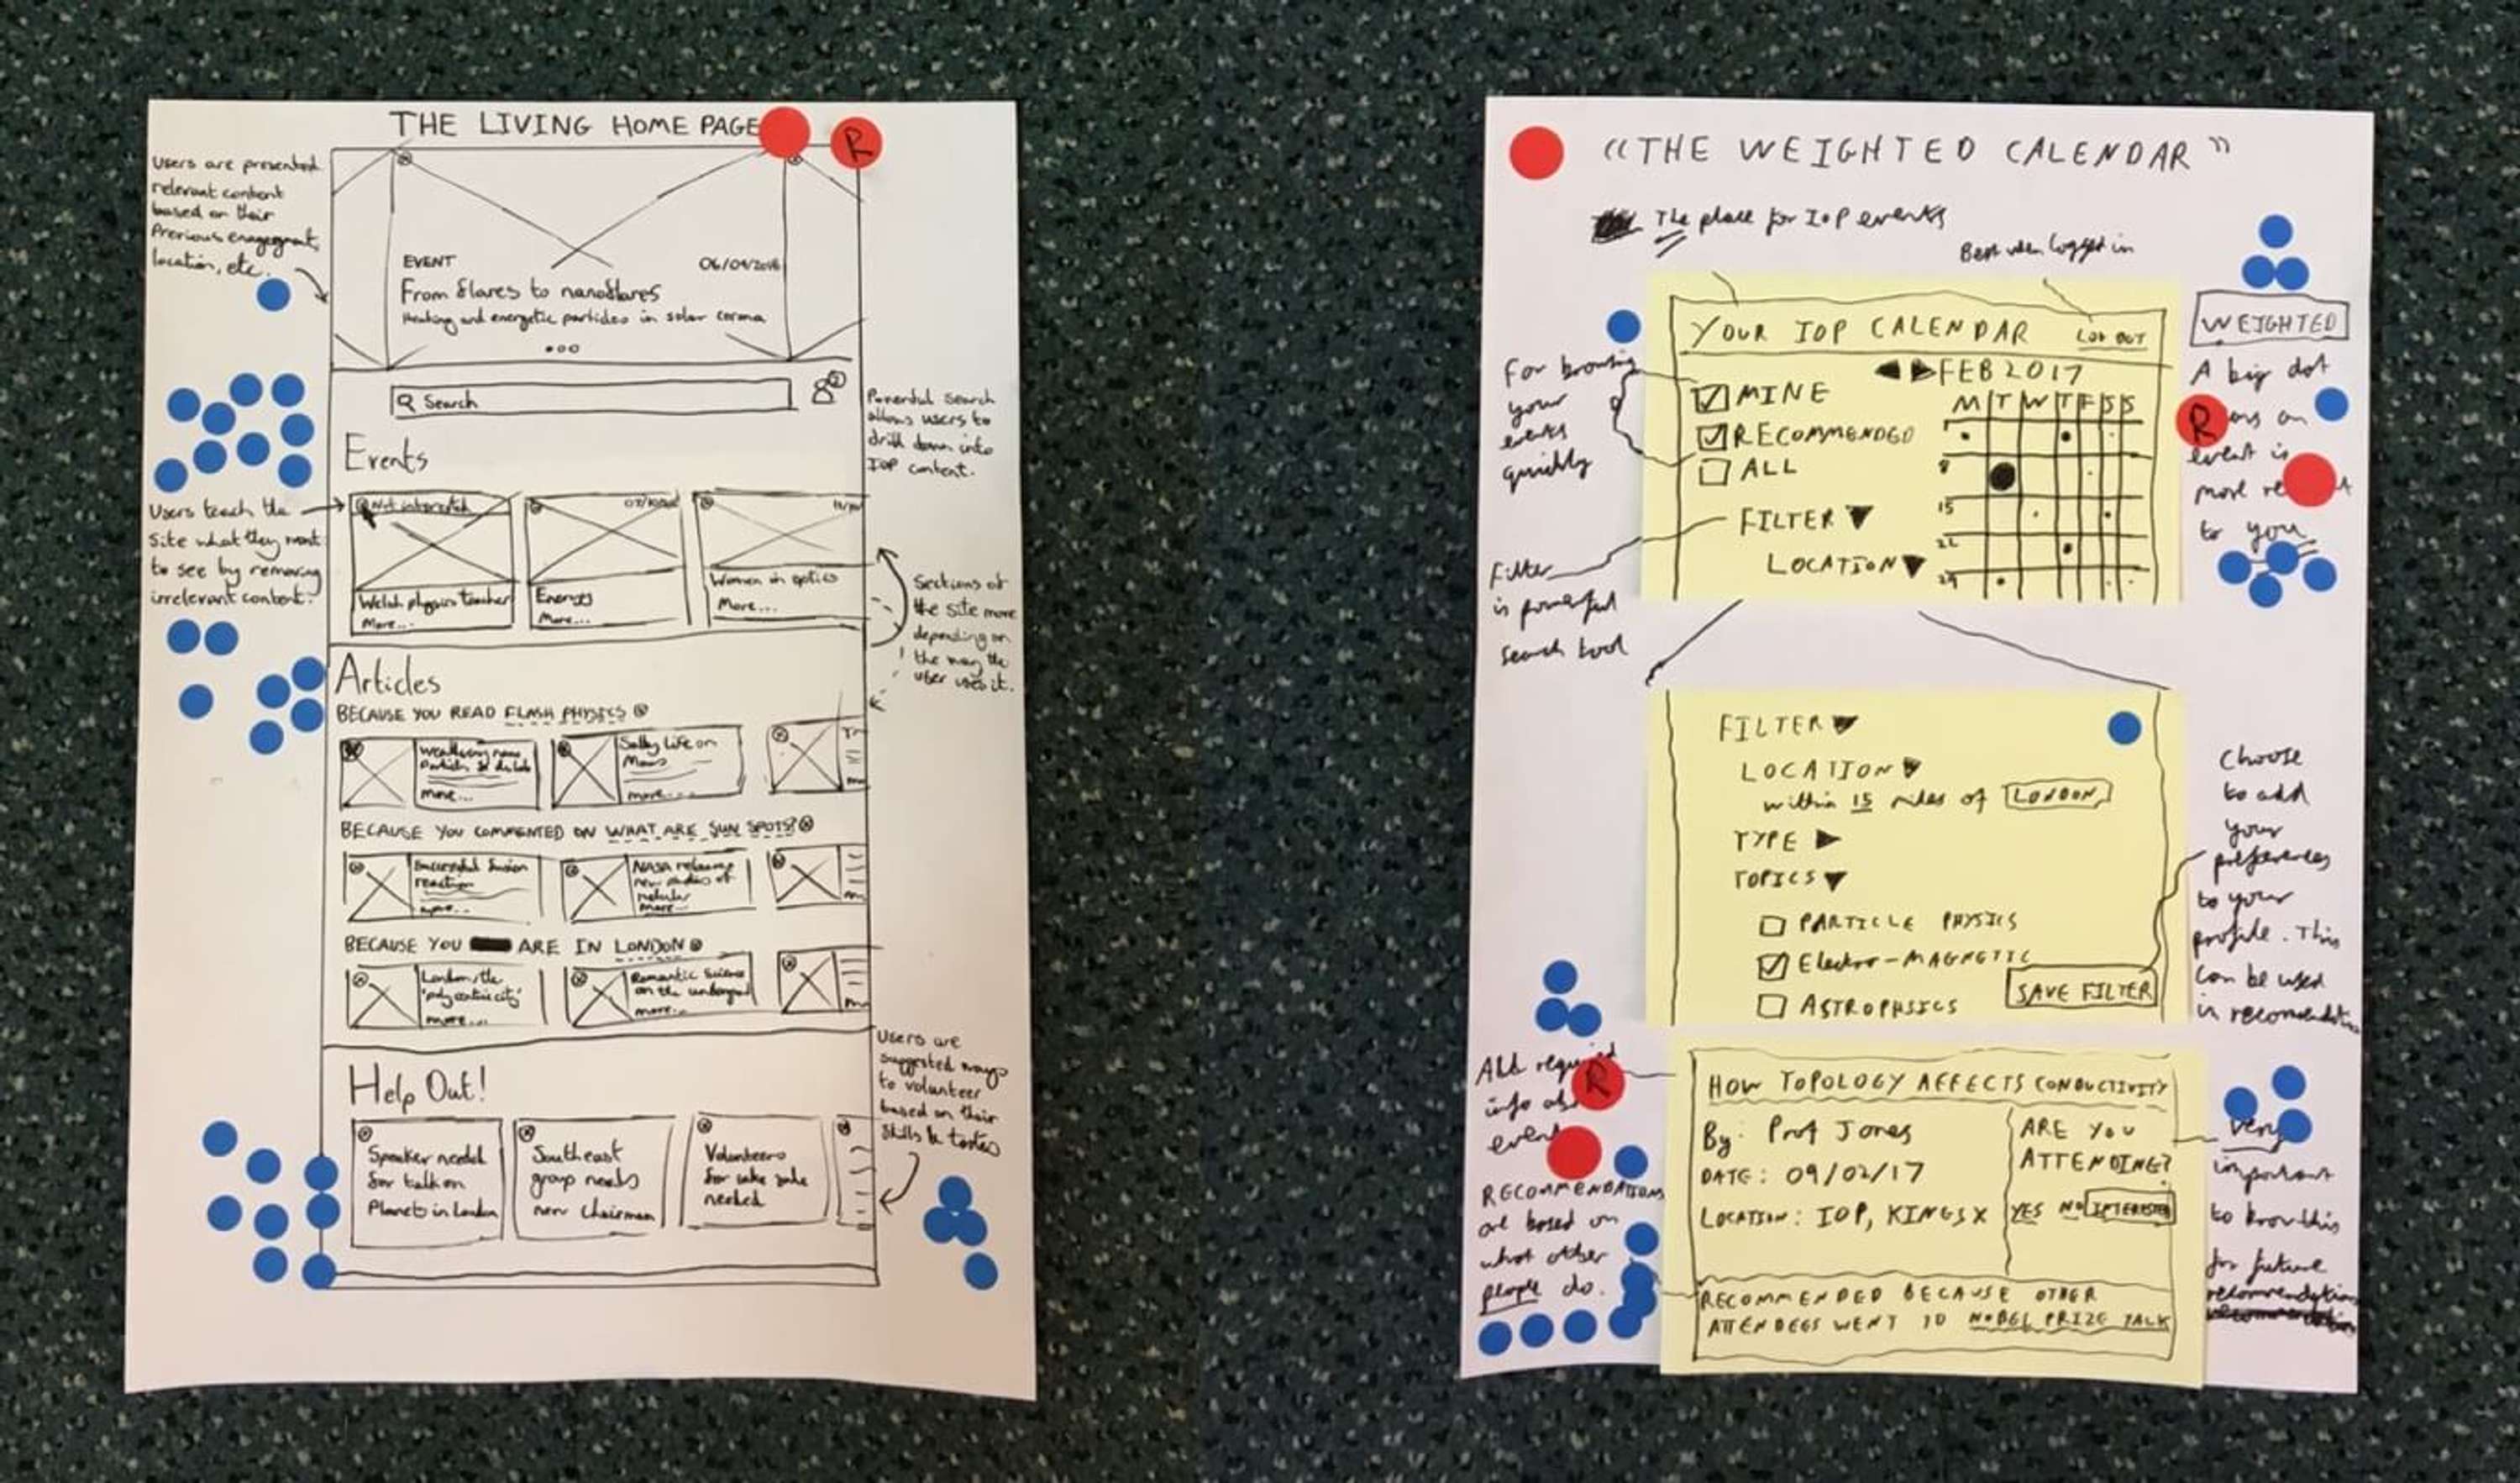 THE LIVING HOME PAGE
R
Users are presented
relevant content
based on their
Previous engagement,
location, etc.
EVENT
06/09/2016
From flares to nanoflares
Heating and energetic particles in solar corona
Search
Powerful search
allows users to
drill down into
IOP content.
Events
Users teach the
site what they want
to see by removing
irrelevant content.
Not interested
Welsh physics teacher
More...
Energy
More...
Women in optics
More...
Sections of
the site move
depending on
the way the
user uses it.
Articles
BECAUSE YOU READ FLASH PHYSICS
more...
Salty Life on
Mars
more...
BECAUSE YOU COMMENTED ON WHAT ARE SUN SPOTS?
Successful fusion
reaction
more...
NASA releases
new studies of
nebular
more...
BECAUSE YOU ARE IN LONDON
London, the
'polycentric city'
more...
Romantic Science
on the underground
more...
Help Out!
Users are
suggested ways
to volunteer
based on their
skills & tastes
Speaker needed
for talk on
Planets in London
Southeast
group needs
new chairman
Volunteers
for cake sale
needed
"THE WEIGHTED CALENDAR"
The place for IoP events
Best when logged in
YOUR IOP CALENDAR
LOG OUT
FEB 2017
MINE
RECOMMENDED
ALL
FILTER
LOCATION
M T W T F S S
8
15
22
29
For browsing
your
events
quickly
Filter
is powerful
search tool
WEIGHTED
A big dot
R
an
event is
more
to you
FILTER
LOCATION
within 15 miles of LONDON
TYPE
TOPICS
PARTICLE PHYSICS
Electro-MAGNETIC
ASTROPHYSICS
SAVE FILTER
Choose
to add
your
preferences
to your
profile. This
can be used
in recommendations
All required
R
info
event
RECOMMENDATIONS
are based on
what other
people do.
HOW TOPOLOGY AFFECTS CONDUCTIVITY
By: Prof Jones
DATE: 09/02/17
LOCATION: IOP, KINGS X
ARE YOU
ATTENDING?
YES NO INTERESTED
RECOMMENDED BECAUSE OTHER
ATTENDEES WENT TO NOBEL PRIZE TALK
Very
important
to know this
for future
recommendations